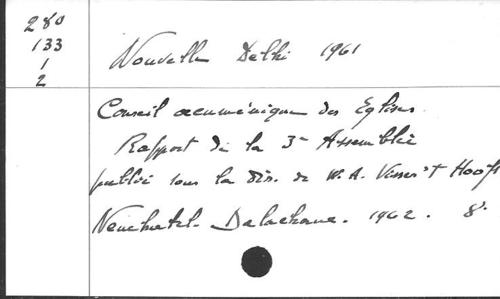 280
133
1
2
Nouvelle Delhi 1961
Conseil œcuménique des Eglises.
Rapport de la 3e Assemblée
publié sous la dir. de W. A. Visser't Hooft
Neuchatel. Delachaux. 1962. 8°.